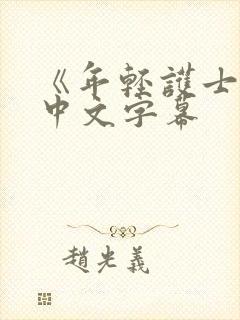 《年轻護士
中文字幕
趙光義